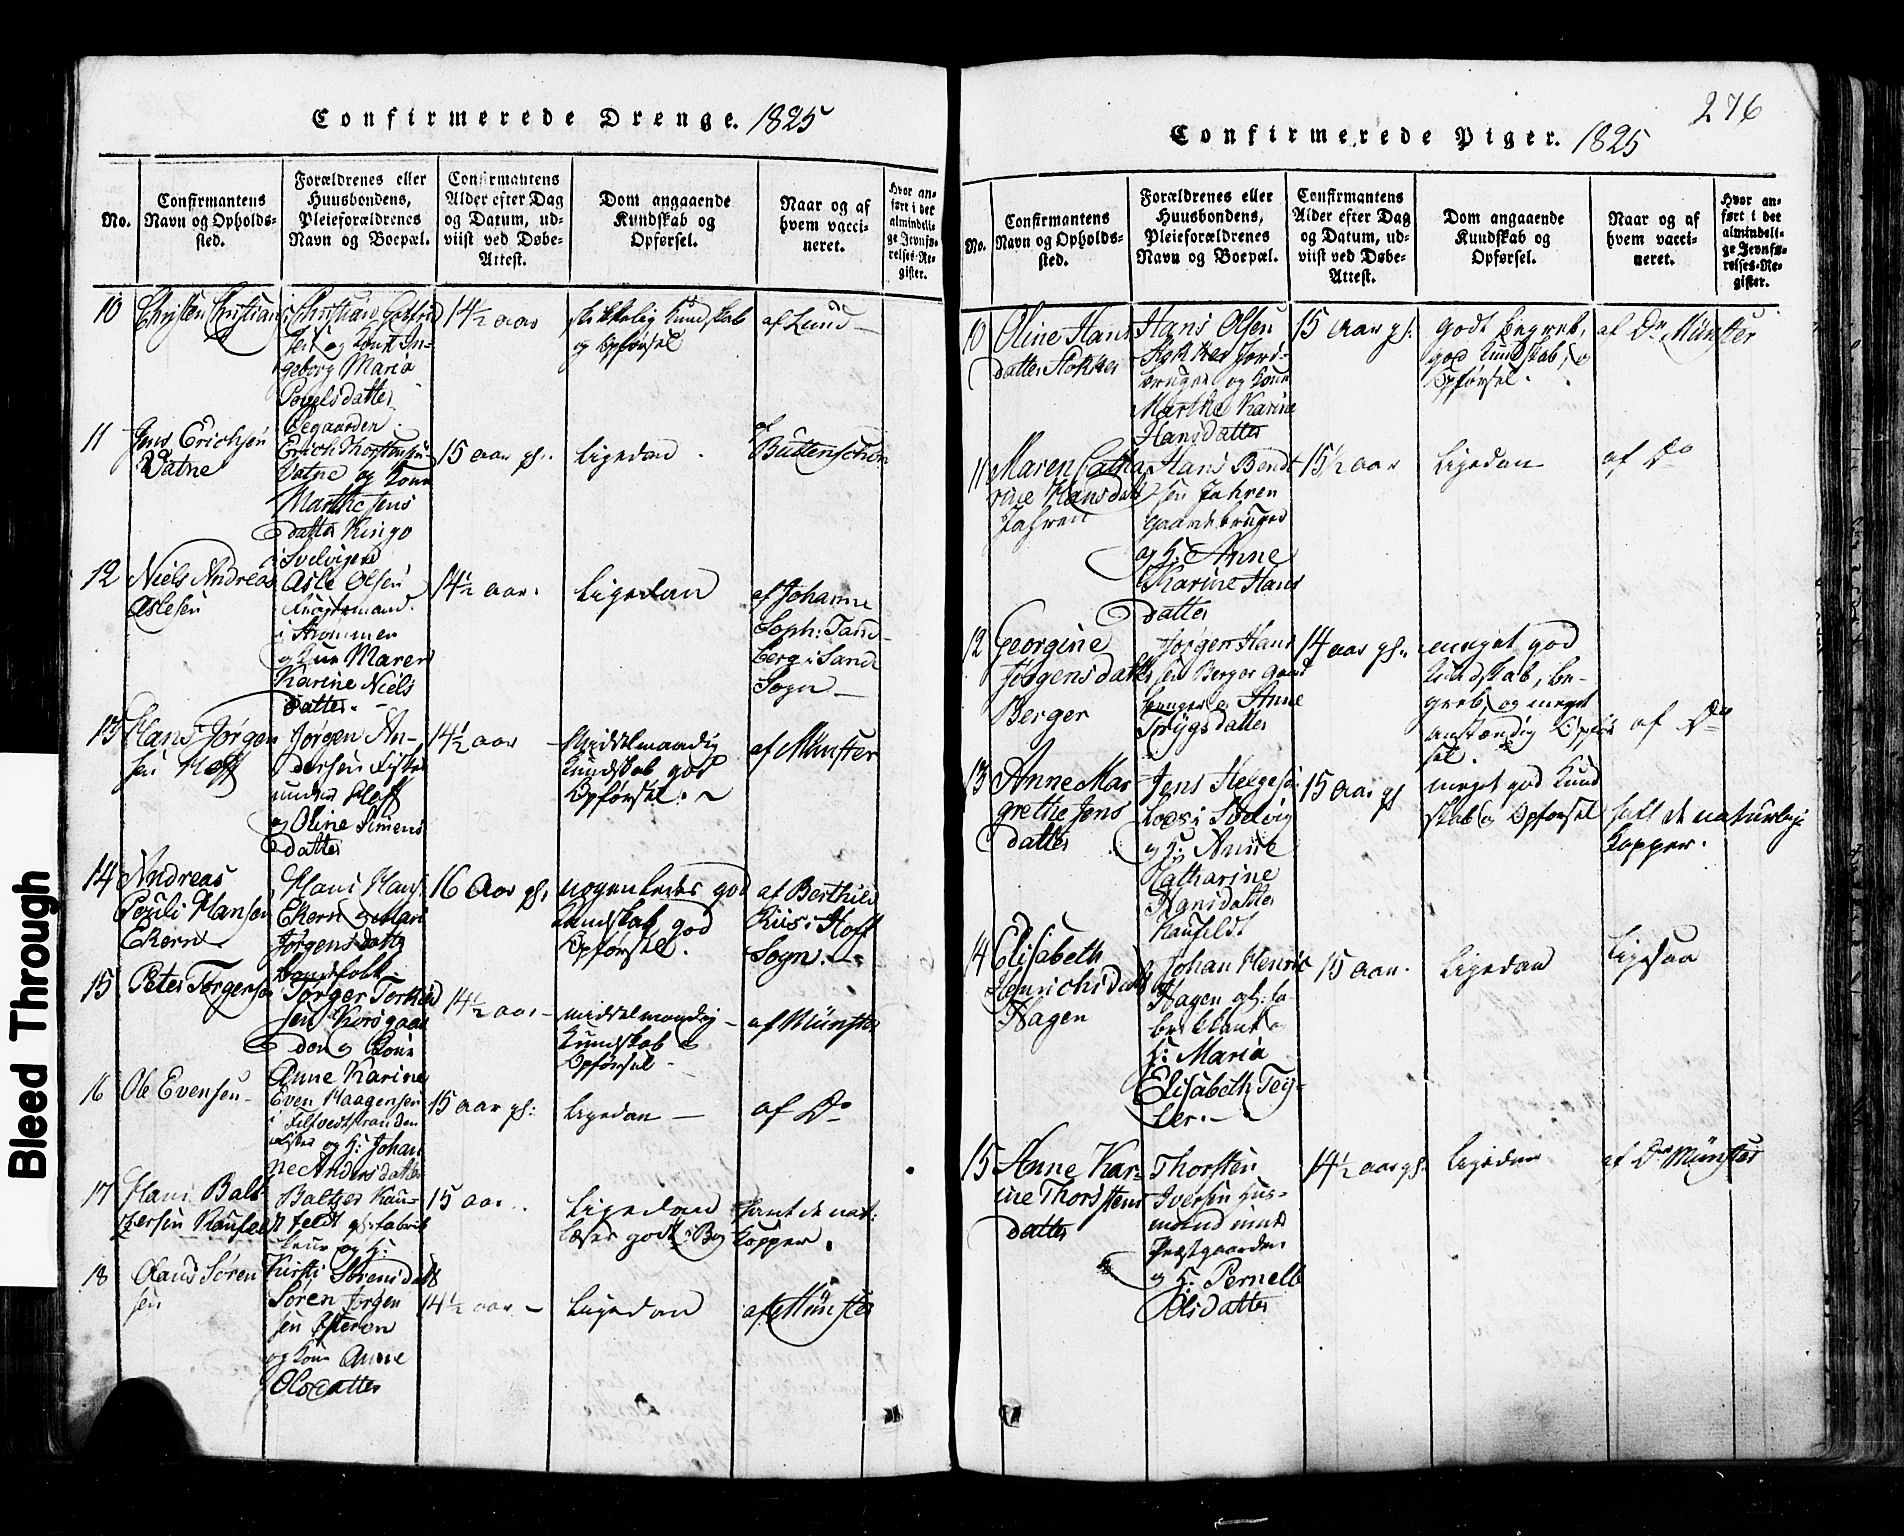 Bleed Through
Confirmerede Drenge. 1825
No.
Confirmantens
Navn og Opholds-
sted.
Forældrenes eller
Huusbondens,
Pleieforældrenes
Navn og Boepæl.
Confirmantens
Alder efter Dag
og Datum, ud-
viist ved Døbe-
Attest.
Dom angaaende
Kundskab og
Opførsel.
Naar og af
hvem vacci-
neret.
Hvor an-
ført i det
almindeli-
ge Jevnfø-
relses-Re-
gister.
10
Christen Christians
Christian
sen og Kone In-
geborg Maria
Povelsdatter
14½ aar
skikkelig Kundskab
og Opførsel
af Lund
11
Jens Erichsen
Vatne
Erich
Vatne og Kone
Marthe Jens
datter Kinge
i Svelvigen
15 aar gl.
Ligedan
af
Buttenschøn
12
Niels Andreas
Aslesen
Asle Olsen
i Strømmen
og Kone Maren
Karine Niels
datter.
14½ aar.
Ligedan
af Johanne
Soph: Tand-
berg i Sande
Sogn
13
Hans Jørgen
sen Hoff
Jørgen An-
dersen Fisker
under Hoff
og Oline Simens
datter
14½ aar
Middelmaadig
Kundskab god
Opførsel.
af Münster
14
Andreas
Pouli Hansen
Ekern
Hans Hans
Ekern og Mari
Jørgensdatter
16 Aar gl.
nogenledes god
Kundskab, god
Opførsel.
af Berthild
Riis i Hoff
Sogn
15
Peter Torgersen
Torger Torkild
sen Korsgaar
den og Kone
Anne Karine
14½ aar
middelmaadig
Kundskab og
Opførsel
af Münster
16
Ole Evensen
Even Haagensen
i Filtvedtstranden
Fisker og H: Johan
ne Andersdatter
15 aar gl:
Ligedan
af Do
17
Hans Balt
zersen Kaufeldt
Baltzer Kau-
feldt gl: Fabrik
og H:
Kirsti Sørensdat
15 aar
Ligedan
læser godt i Bog
havt de nat:
Kopper.
18
Olaus Søren
sen
Søren Jørgen
sen
og Kone Anne
Olsdatter
14½ aar
Ligedan
af Münster
276
Confirmerede Piger. 1825
No.
Confirmantens
Navn og Opholds-
sted.
Forældrenes eller
Huusbondens,
Pleieforældrenes
Navn og Boepæl.
Confirmantens
Alder efter Dag
og Datum, ud-
viist ved Døbe-
Attest.
Dom angaaende
Kundskab og
Opførsel.
Naar og af
hvem vacci-
neret.
Hvor an-
ført i det
almindeli-
ge Jevnfø-
relses-Re-
gister.
10
Oline Hans
datter Stokker
Hans Olsen
Stokker Jord-
bruger og Kone
Marthe Karine
Hansdatter
15 Aar gl.
Godt Begreb,
god Kundskab, og
Opførsel.
af Dr Münster
11
Maren Catha
rine Hansdatt
Jahren
Hans Bendt
sen Jahren
Gaardebruger
og H. Anne
Karine Hans
datter
15½ aar
Ligedan
af Do
12
Georgine
Jørgensdatter
Berger
Jørgen Hans
sen Berger Gaard
bruger og Anne
Trygsdatter
14 aar gl.
meget god
Kundskab, be-
greb, og meget
anstændig Opfør
sel.
af Do
13
Anne Mar
grethe Jens
datter
Jens Helgesen
Lods i Svelvig
og H: Anne
Katharine
Hansdatter
Kaufeldt
15 Aar gl
meget god Kund
skab og Opførsel
havt de naturlige
Kopper.
14
Elisabeth
Henrichsdatt
Hagen
Johan Henric
Hagen gl: fa-
brikant og
H: Maria
Elisabeth Tey-
ler.
15 aar.
Ligedan
Ligesaa
15
Anne Kar-
ine Thorstens
datter
Thorsten
Iversen Hus-
mand under
Præstgaarden
og H: Pernelle
Olsdatter
14½ aar gl.
Ligedan
af Dr Münster